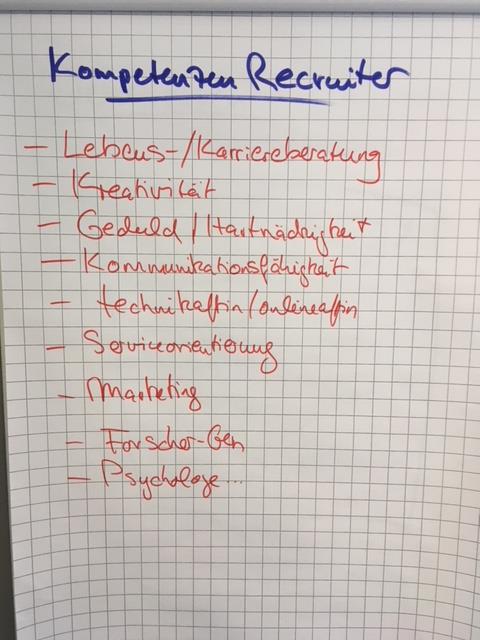 Kompetenzen Recruiter
- Lebens-/Karriereberatung
- Kreativität
- Geduld / Hartnäckigkeit
- Kommunikationsfähigkeit
- technikaffin/onlineaffin
- Serviceorientierung
- Marketing
- Forscher-Gen
- Psychologe...